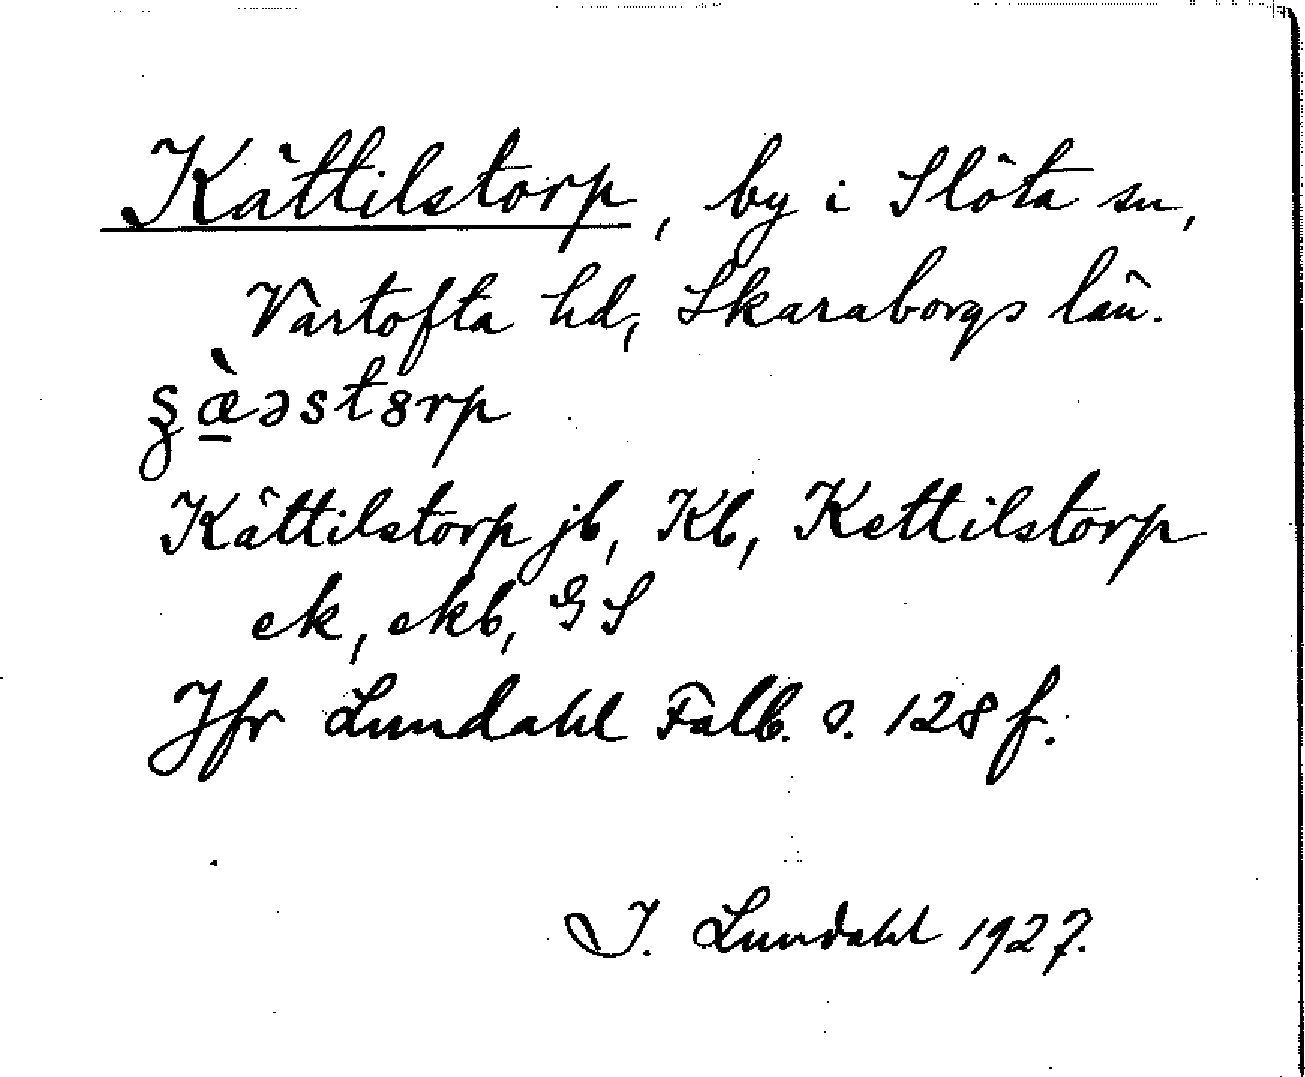 Kättilstorp, by i Slöta sn,
Vartofta hd, Skaraborgs län.
ʂæ̠̀əstȣrp
Kättilstorp jb, Kb, Kettilstorp
ek, ekb, GS
Jfr Lundahl Falb. s. 128 f.
I. Lundahl 1927.